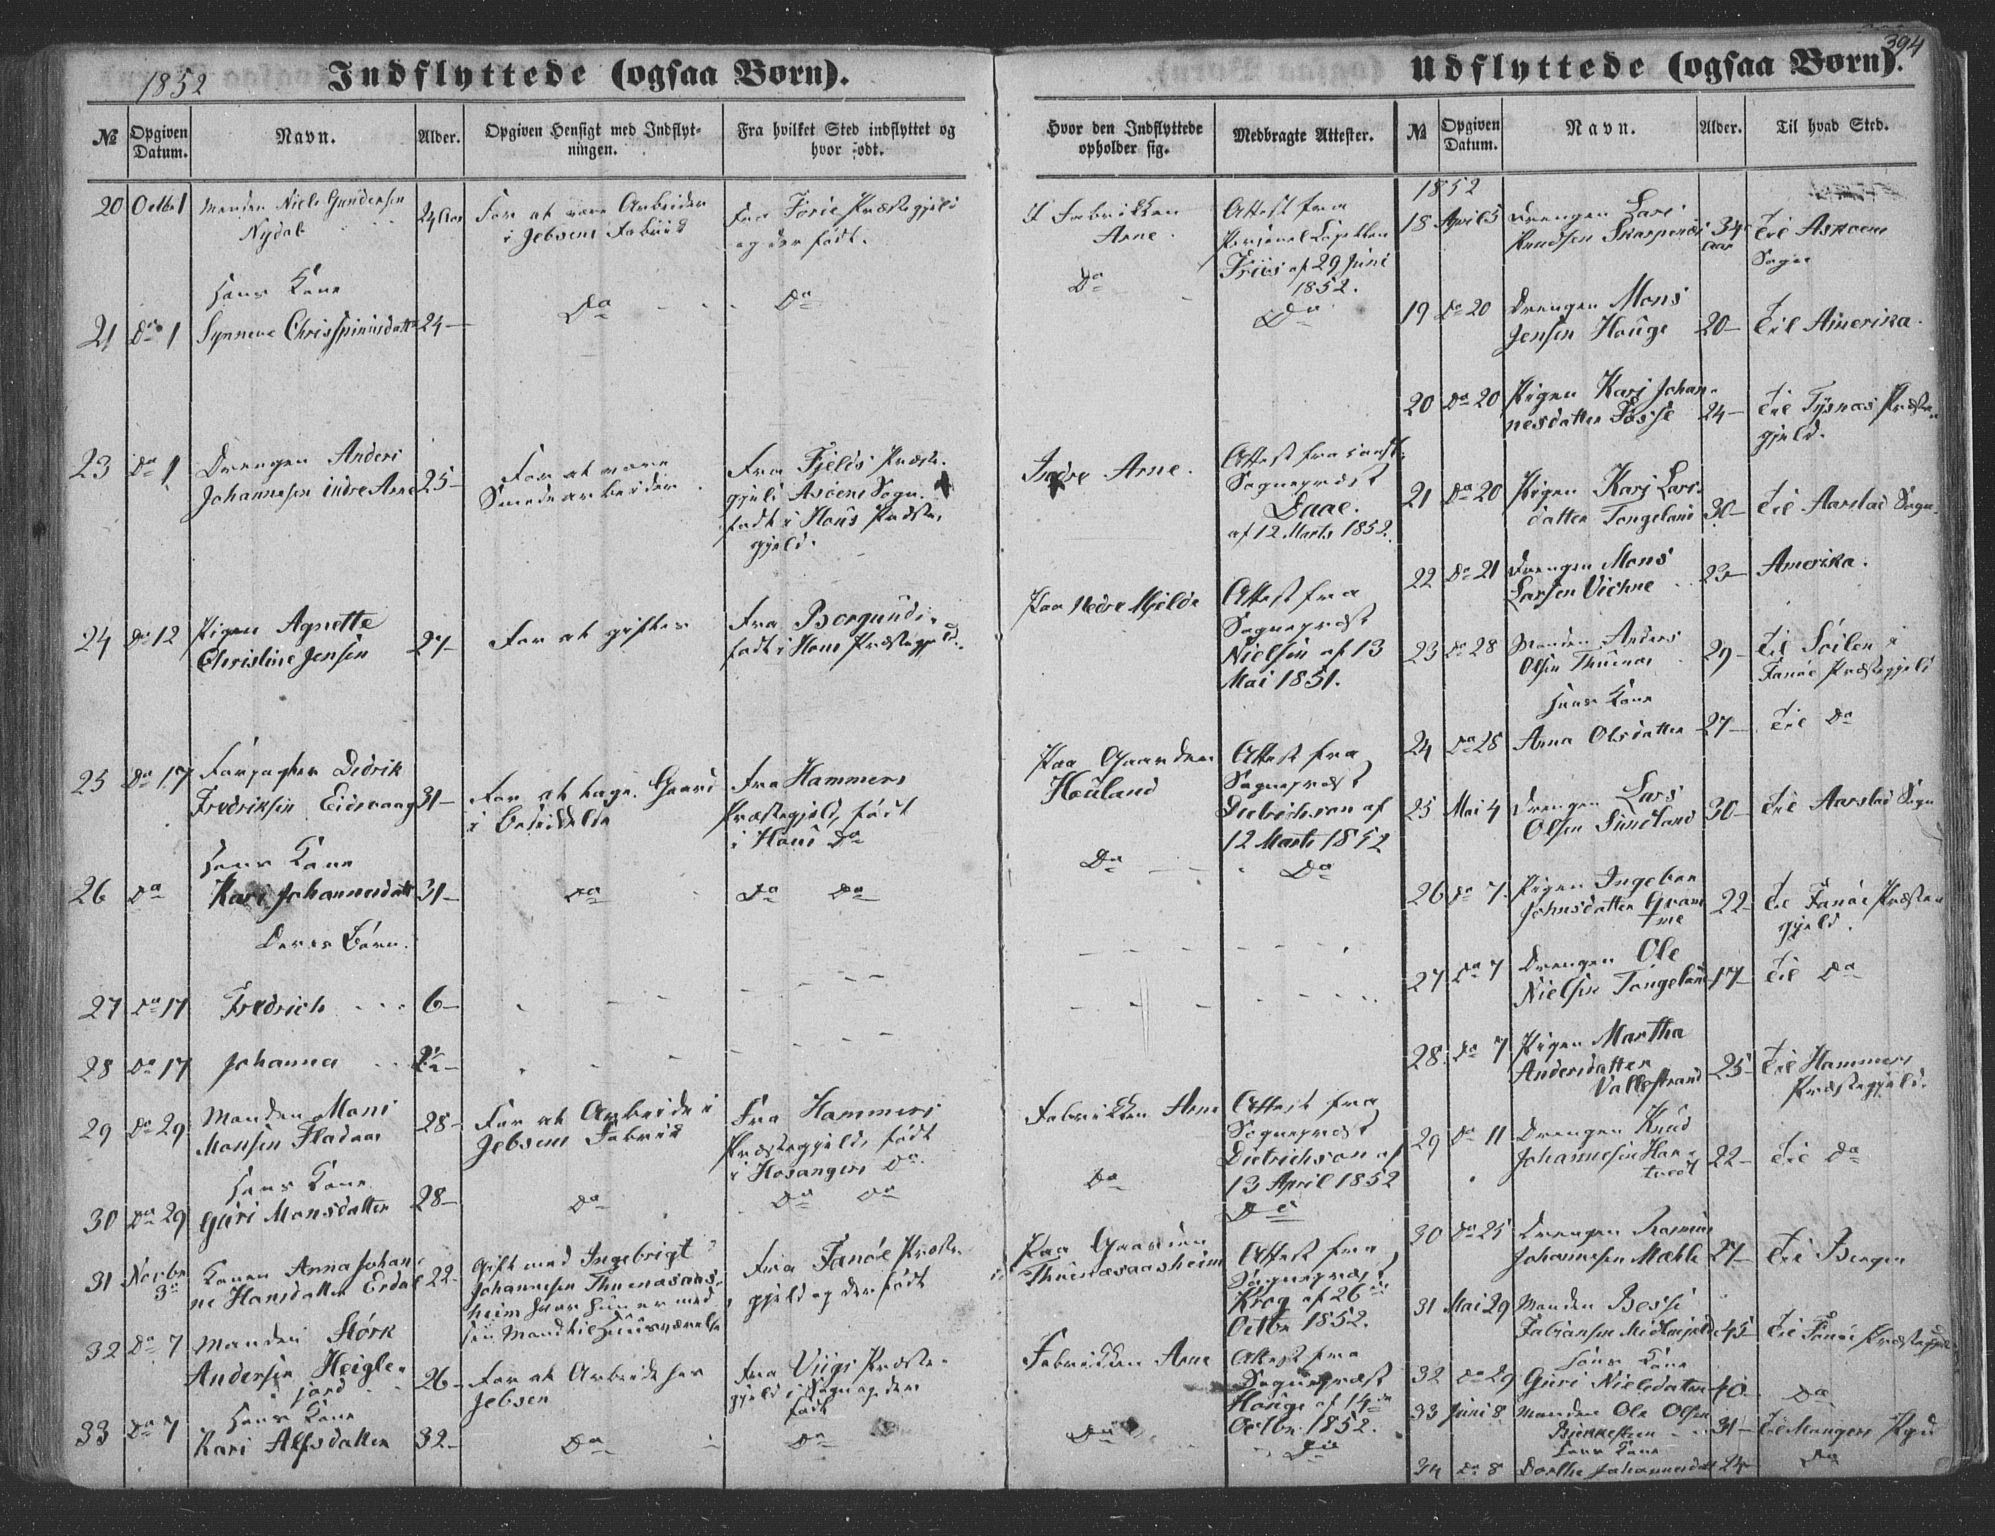 394
1852
Indflyttede (ogsaa Børn).
№
Opgiven Datum.
Navn.
Alder.
Opgiven Hensigt med Indflyt-
ningen.
Fra hvilket Sted indflyttet og
hvor født.
Hvor den Indflyttede
opholder sig.
Medbragte Attester.
20 Octbr 1 Manden Niels Gundersen
Nydal
For at være Arbeider
i Jebsens Fabrik
og der født.
I Fabrikken
Arne.
Attest fra
Personel Capellan
Friis af 29 Juni
1852.
Hans Kone
21 Do 1 Synneve Chrisspinusdatter 24 –
Do
Do
Do
Do
23 Do 1 Drengen Anders
Johannesen indre Arne 25 –
For at være
Smedearbeider.
Fra Fjelds Præste-
gjeld Askøens Sogn.
født i Hous Præste-
gjeld.
Indre Arne.
Attest fra
Sognepræst
Daae.
af 12 Marts 1852.
24 Do 12 Pigen Agnette
Christine Jensen 27 –
For at giftes
Fra Borgund
født i Hous Præstegjeld.
Paa Nedre Mjelde
Attest fra
Sognepræst
Nielsen af 13
Mai 1851.
25 Do 17 Forpagter Dedrik
Fredriksen Eidsvaag 31 –
For at tage Gaard
i
Fra Hammers
Præstegjeld, født
i Hous Do
Paa Gaarden
Houland
Attest fra
Sognepræst
Dietrichson af
12 Marts 1852
Hans Kone
26 Do Kari Johannesdatt 31 –
Do
Do Do
Do
Do
Deres Børn.
27 Do 17 Fredrich 6 –
28 Do 17 Johanna
29 Do 29 Manden Mons
Monsen Fladaas 28 –
For at Arbeide i
Jebsens Fabrik
Fra Hammers
Præstegjeld, født
i Hosangers Do.
Fabrikken Arne
Attest fra
Sognepræst
Dietrichson af
13 April 1852
Hans Kone
30 Do 29 Guri Monsdatter 28 –
Do
Do Do
Do
Do
31 Novbr 3 Konen Anna Johan-
ne Hansdatter Erdal 22 –
Gift med Ingebrigt
Johannesen Thunasaas-
heim hvor hun er med
sin Mand til Huusværelse
Fra Fanøe Præste-
gjeld og der født
Paa Gaarden
Thunesaasheim
Attest fra
Sognepræst
Krog af 26
Octbr 1852.
32 Do 7 Manden Størk
Andersen Heigle-
fjord 26 –
For at Arbeide hos
Jebsen
Fra Viigs Præste-
gjeld i Sogn og der
født
Fabrikken Arne
Attest fra
Sognepræst
Houge af 14
Octbr. 1852.
Hans Kone
33 Do 7 Kari Alfsdatter 32 –
Do
Do
Do
Do
Udflyttede (ogsaa Børn).
№
Opgiven Datum.
Navn.
Alder.
Til hvad Sted.
1852
18 April 5 Drengen Lars
Knudsen 34 Aar Til Askøens
Sogn
19 Do 20 Drengen Mons
Jensen Houge 20 – Til Amerika.
20 Do 20 Pigen Kari Johan-
nesdatter Fosse 24 – Til Tysnæs Præste-
gjeld.
21 Do 20 Pigen Kari Lars-
datter Tongeland 30 – Til Aarstad Sogn.
22 Do 21 Drengen Mons
Larsen Vichne 23 – Amerika.
23 Do 28 Manden Anders
Olsen Thunæs 29 – Til Søilen i
Fanøe Præstegjeld
Hans Kone
24 Do 28 Anna Olsdatter 27 – Til Do
25 Mai 4 Drengen Lars
Olsen Sundland 30 – Til Aarstad Sogn
26 Do 7. Pigen Ingebor
Johnsdatter 22 – Til Fanøe Præste-
gjeld.
27 Do 7 Drengen Ole
Nielsen Tongeland 17 – Til Do
28 Do 7 Pigen Martha
Andersdatter
Vallestrand 25 – Til Hammers
Præstegjeld.
29 Do 11 Drengen Knud
Johannesen Han-
tveit 22 – Til Do
30 Do 25 Drengen Rasmus
Johannesen Mahle 27 – Til Bergen
31 Mai 29 Manden Besse
Fabiansen Midtmjelde 45 – Til Fanøe Præstegjeld
Hans Kone
32 Do 29 Guri Nielsdatter 40 Do
33 Juni 8 Manden Ole Olsen
31 – Til Mangers Pgjd
Hans Kone
34 Do 8 Dorthe Johannesdatt 24 – Do